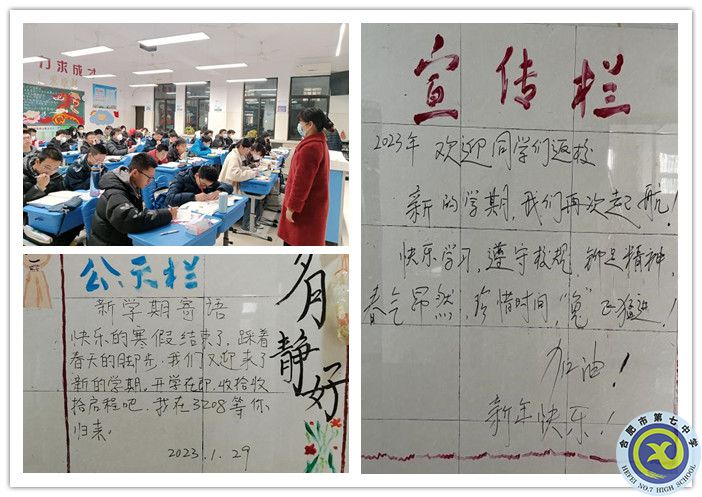 力求成才
公示栏
新学期寄语
快乐的寒假结束了，踩着
春天的脚步，我们又迎来了
新的学期，开学在即，收拾收
拾启程吧，我在3208等你
归来。
2023.1.29
静好
宣传栏
2023年 欢迎同学们返校
新的学期，我们再次起航！
快乐学习，遵守校规，抖足精神，
春气昂然，珍惜时间，"兔"飞猛进！
加油！
新年快乐！
合肥市第七中学
HEFEI NO.7 HIGH SCHOOL